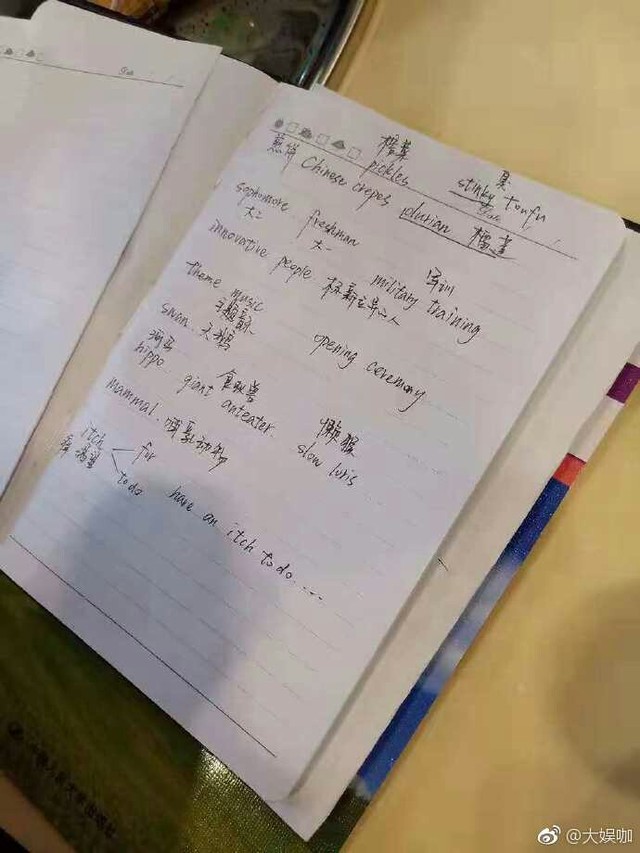 榨菜 臭
煎饼 Chinese crepes pickles stinky toufu
durian 榴莲
sophomore freshman 军训
大二 大一 military training
innovative people 创新主导的人
theme music opening ceremony
主题音乐
swan. 天鹅
河马 食蚁兽 懒猴
hippo giant anteater. slow loris
mammal. 哺乳动物
itch for
to do have an itch to do.....
@大娱咖